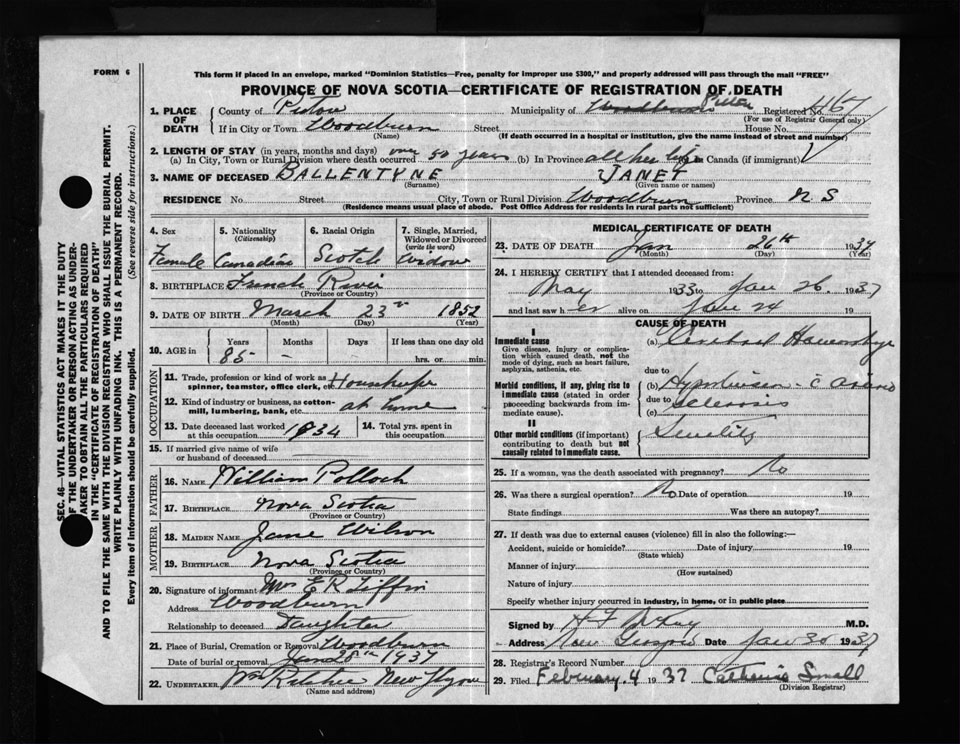 FORM 6
This form if placed in an envelope, marked "Dominion Statistics—Free, penalty for improper use $300," and properly addressed will pass through the mail "FREE"
PROVINCE OF NOVA SCOTIA—CERTIFICATE OF REGISTRATION OF DEATH
1. PLACE OF DEATH County of Pictou Municipality of Pictou Registered No. 467
(For use of Registrar General only)
If in City or Town Woodburn Street House No.
(Name) (If death occurred in a hospital or institution, give the name instead of street and number)
2. LENGTH OF STAY (in years, months and days)
(a) In City, Town or Rural Division where death occurred over 50 years (b) In Province all her life in Canada (if immigrant)
3. NAME OF DECEASED BALLENTYNE JANET
(Surname) (Given name or names)
RESIDENCE No. Street City, Town or Rural Division Woodburn Province N.S
(Residence means usual place of abode. Post Office Address for residents in rural parts not sufficient)
4. Sex 5. Nationality (Citizenship) 6. Racial Origin 7. Single, Married, Widowed or Divorced (write the word)
Female Canadian Scotch Widow
8. BIRTHPLACE French River
(Province or Country)
9. DATE OF BIRTH March 23 1852
(Month) (Day) (Year)
10. AGE in Years Months Days If less than one day old
85 - hrs. or min.
OCCUPATION
11. Trade, profession or kind of work as spinner, teamster, office clerk, etc. Housekeeper
12. Kind of industry or business, as cotton-mill, lumbering, bank, etc. at home
13. Date deceased last worked at this occupation 1934 14. Total yrs. spent in this occupation
15. If married give name of wife or husband of deceased
FATHER
16. NAME William Pollock
17. BIRTHPLACE Nova Scotia
(Province or Country)
MOTHER
18. MAIDEN NAME Jane Wilson
19. BIRTHPLACE Nova Scotia
(Province or Country)
20. Signature of informant Mrs E R Tiffin
Address Woodburn
Relationship to deceased Daughter
21. Place of Burial, Cremation or Removal Woodburn
Date of burial or removal 28th 1937
22. UNDERTAKER New Glasgow
(Name and address)
MEDICAL CERTIFICATE OF DEATH
23. DATE OF DEATH Jan 26th 1937
(Month) (Day) (Year)
24. I HEREBY CERTIFY that I attended deceased from:
May 1933 to Jan 26 1937
and last saw h er alive on Jan 24
CAUSE OF DEATH
I
Immediate cause
Give disease, injury or complication which caused death, not the mode of dying, such as heart failure, asphyxia, asthenia, etc.
(a) Cerebral Haemorrhage
due to
Morbid conditions, if any, giving rise to immediate cause (stated in order proceeding backwards from immediate cause).
(b) Hypertension
due to sclerosis
(c)
II
Other morbid conditions (if important) contributing to death but not causally related to immediate cause.
Senility
25. If a woman, was the death associated with pregnancy? No
26. Was there a surgical operation? No Date of operation 19
State findings Was there an autopsy?
27. If death was due to external causes (violence) fill in also the following:—
Accident, suicide or homicide? Date of injury 19
(State which)
Manner of injury
(How sustained)
Nature of injury
Specify whether injury occurred in industry, in home, or in public place
Signed by M.D.
Address New Glasgow Date Jan 30 1937
28. Registrar's Record Number
29. Filed February 4 1937 Catherine Small
(Division Registrar)
SEC. 46—VITAL STATISTICS ACT MAKES IT THE DUTY
OF THE UNDERTAKER OR PERSON ACTING AS UNDER-
TAKER TO OBTAIN ALL THE PARTICULARS REQUIRED
IN THE "CERTIFICATE OF REGISTRATION OF DEATH"
AND TO FILE THE SAME WITH THE DIVISION REGISTRAR WHO SHALL ISSUE THE BURIAL PERMIT.
WRITE PLAINLY WITH UNFADING INK. THIS IS A PERMANENT RECORD.
Every item of information should be carefully supplied. (See reverse side for instructions.)